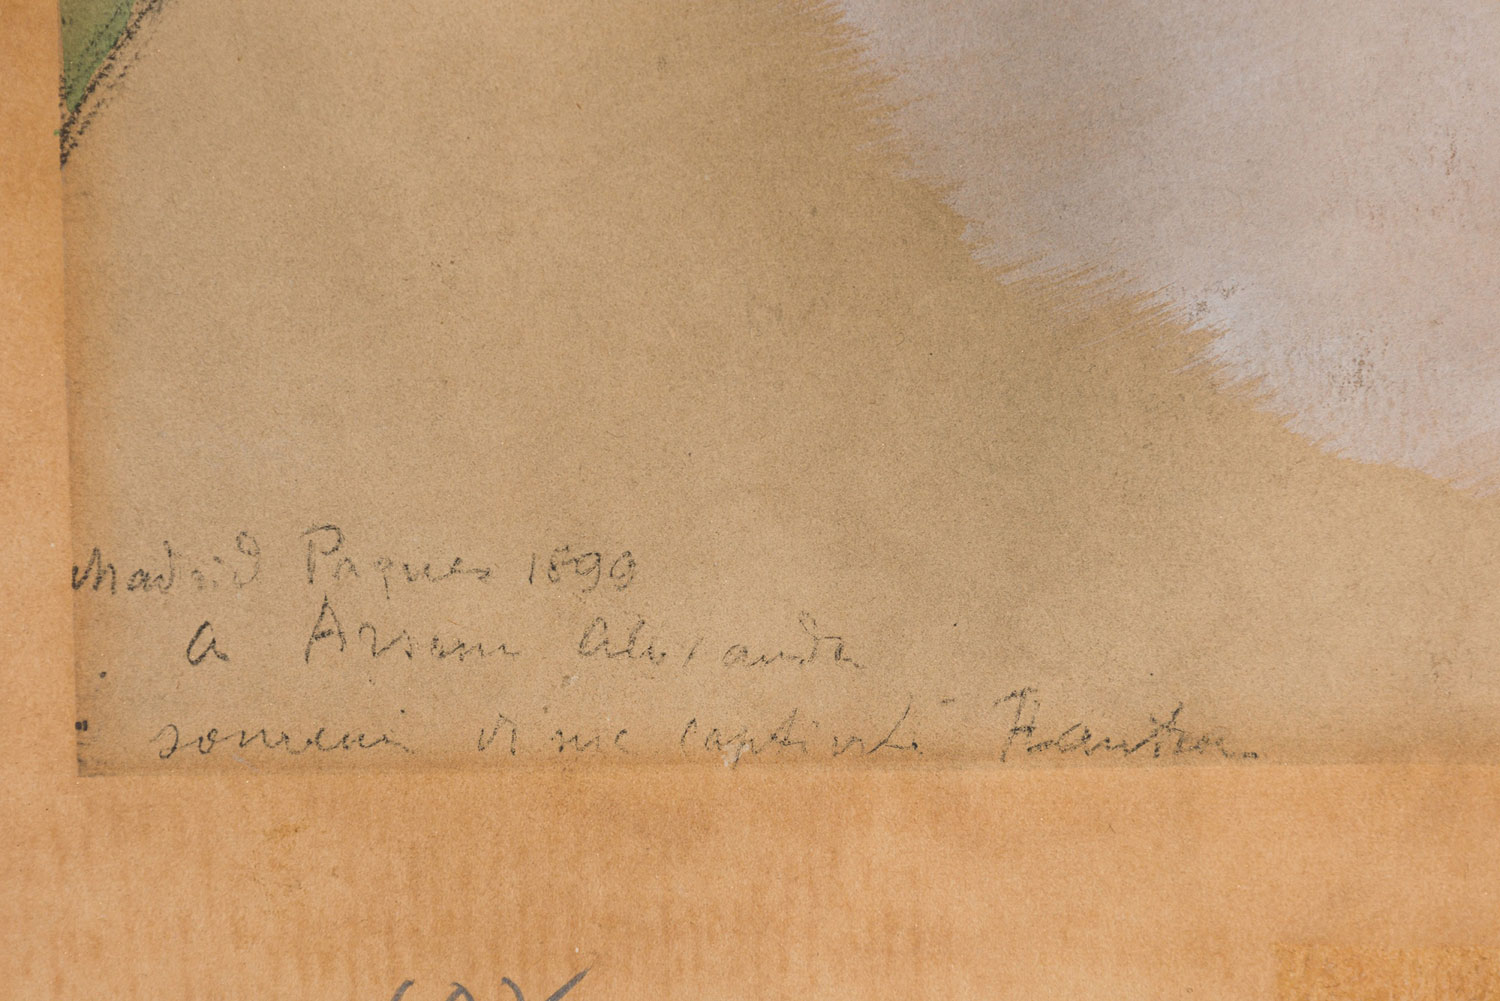 Madrid Paques 1899
a Arsene Alexandre
souvenir d'une captivité TLautrec